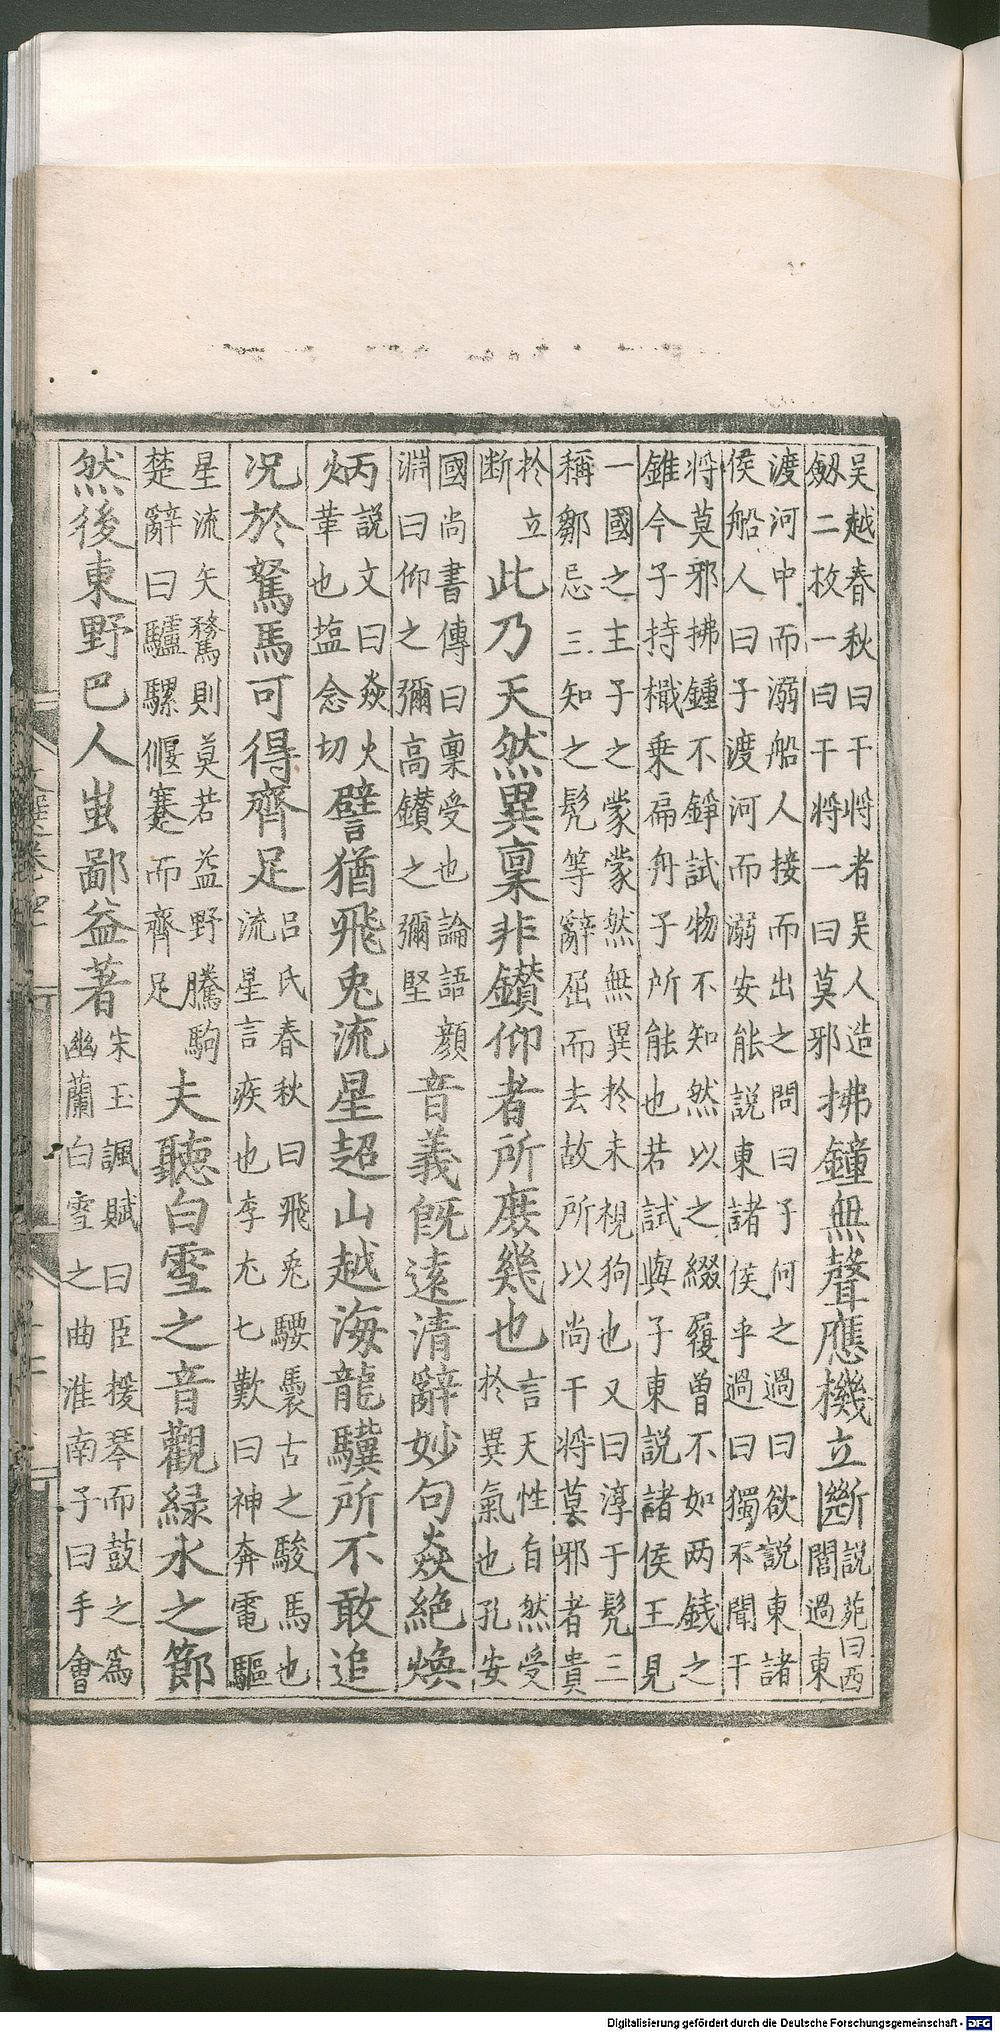 吳越春秋曰干將者吳人造
劔二枚一曰干將一曰莫邪拂鐘無聲應機立斷說苑曰西
閭過東
渡河中而溺船人接而出之問曰子何之過曰欲說東諸
侯船人曰子渡河而溺安能說東諸侯乎過曰獨不聞干
將莫邪拂鍾不錚試物不知然以之綴履曾不如两錢之
錐今子持檝乗扁舟子所能也若試與子東說諸侯王見
一國之主子之蒙蒙然無異扵未視狗也又曰淳于髠三
稱鄒忌三知之髠等辭屈而去故所以尚干將莫邪者貴
扵立
断此乃天然異禀非鑚仰者所庶幾也言天性自然受
扵異氣也孔安
國尚書傳曰禀受也論語顔
淵曰仰之彌高鑚之彌堅音義旣遠清辭妙句焱絶煥
炳說文曰焱火
華也塩念切譬猶飛兎流星超山越海龍驥所不敢追
况於駑馬可得齊足吕氏春秋曰飛兎騕褭古之駿馬也
流星言疾也李尤七歎曰神奔電驅
星流矢驁則莫若益野騰駒
楚辭曰驢騾偃蹇而齊足夫聽白雪之音觀緑水之節
然後東野巴人蚩鄙益著宋玉諷賦曰臣援琴而鼓之爲
幽蘭白雪之曲淮南子曰手會
Digitalisierung gefördert durch die Deutsche Forschungsgemeinschaft - DFG